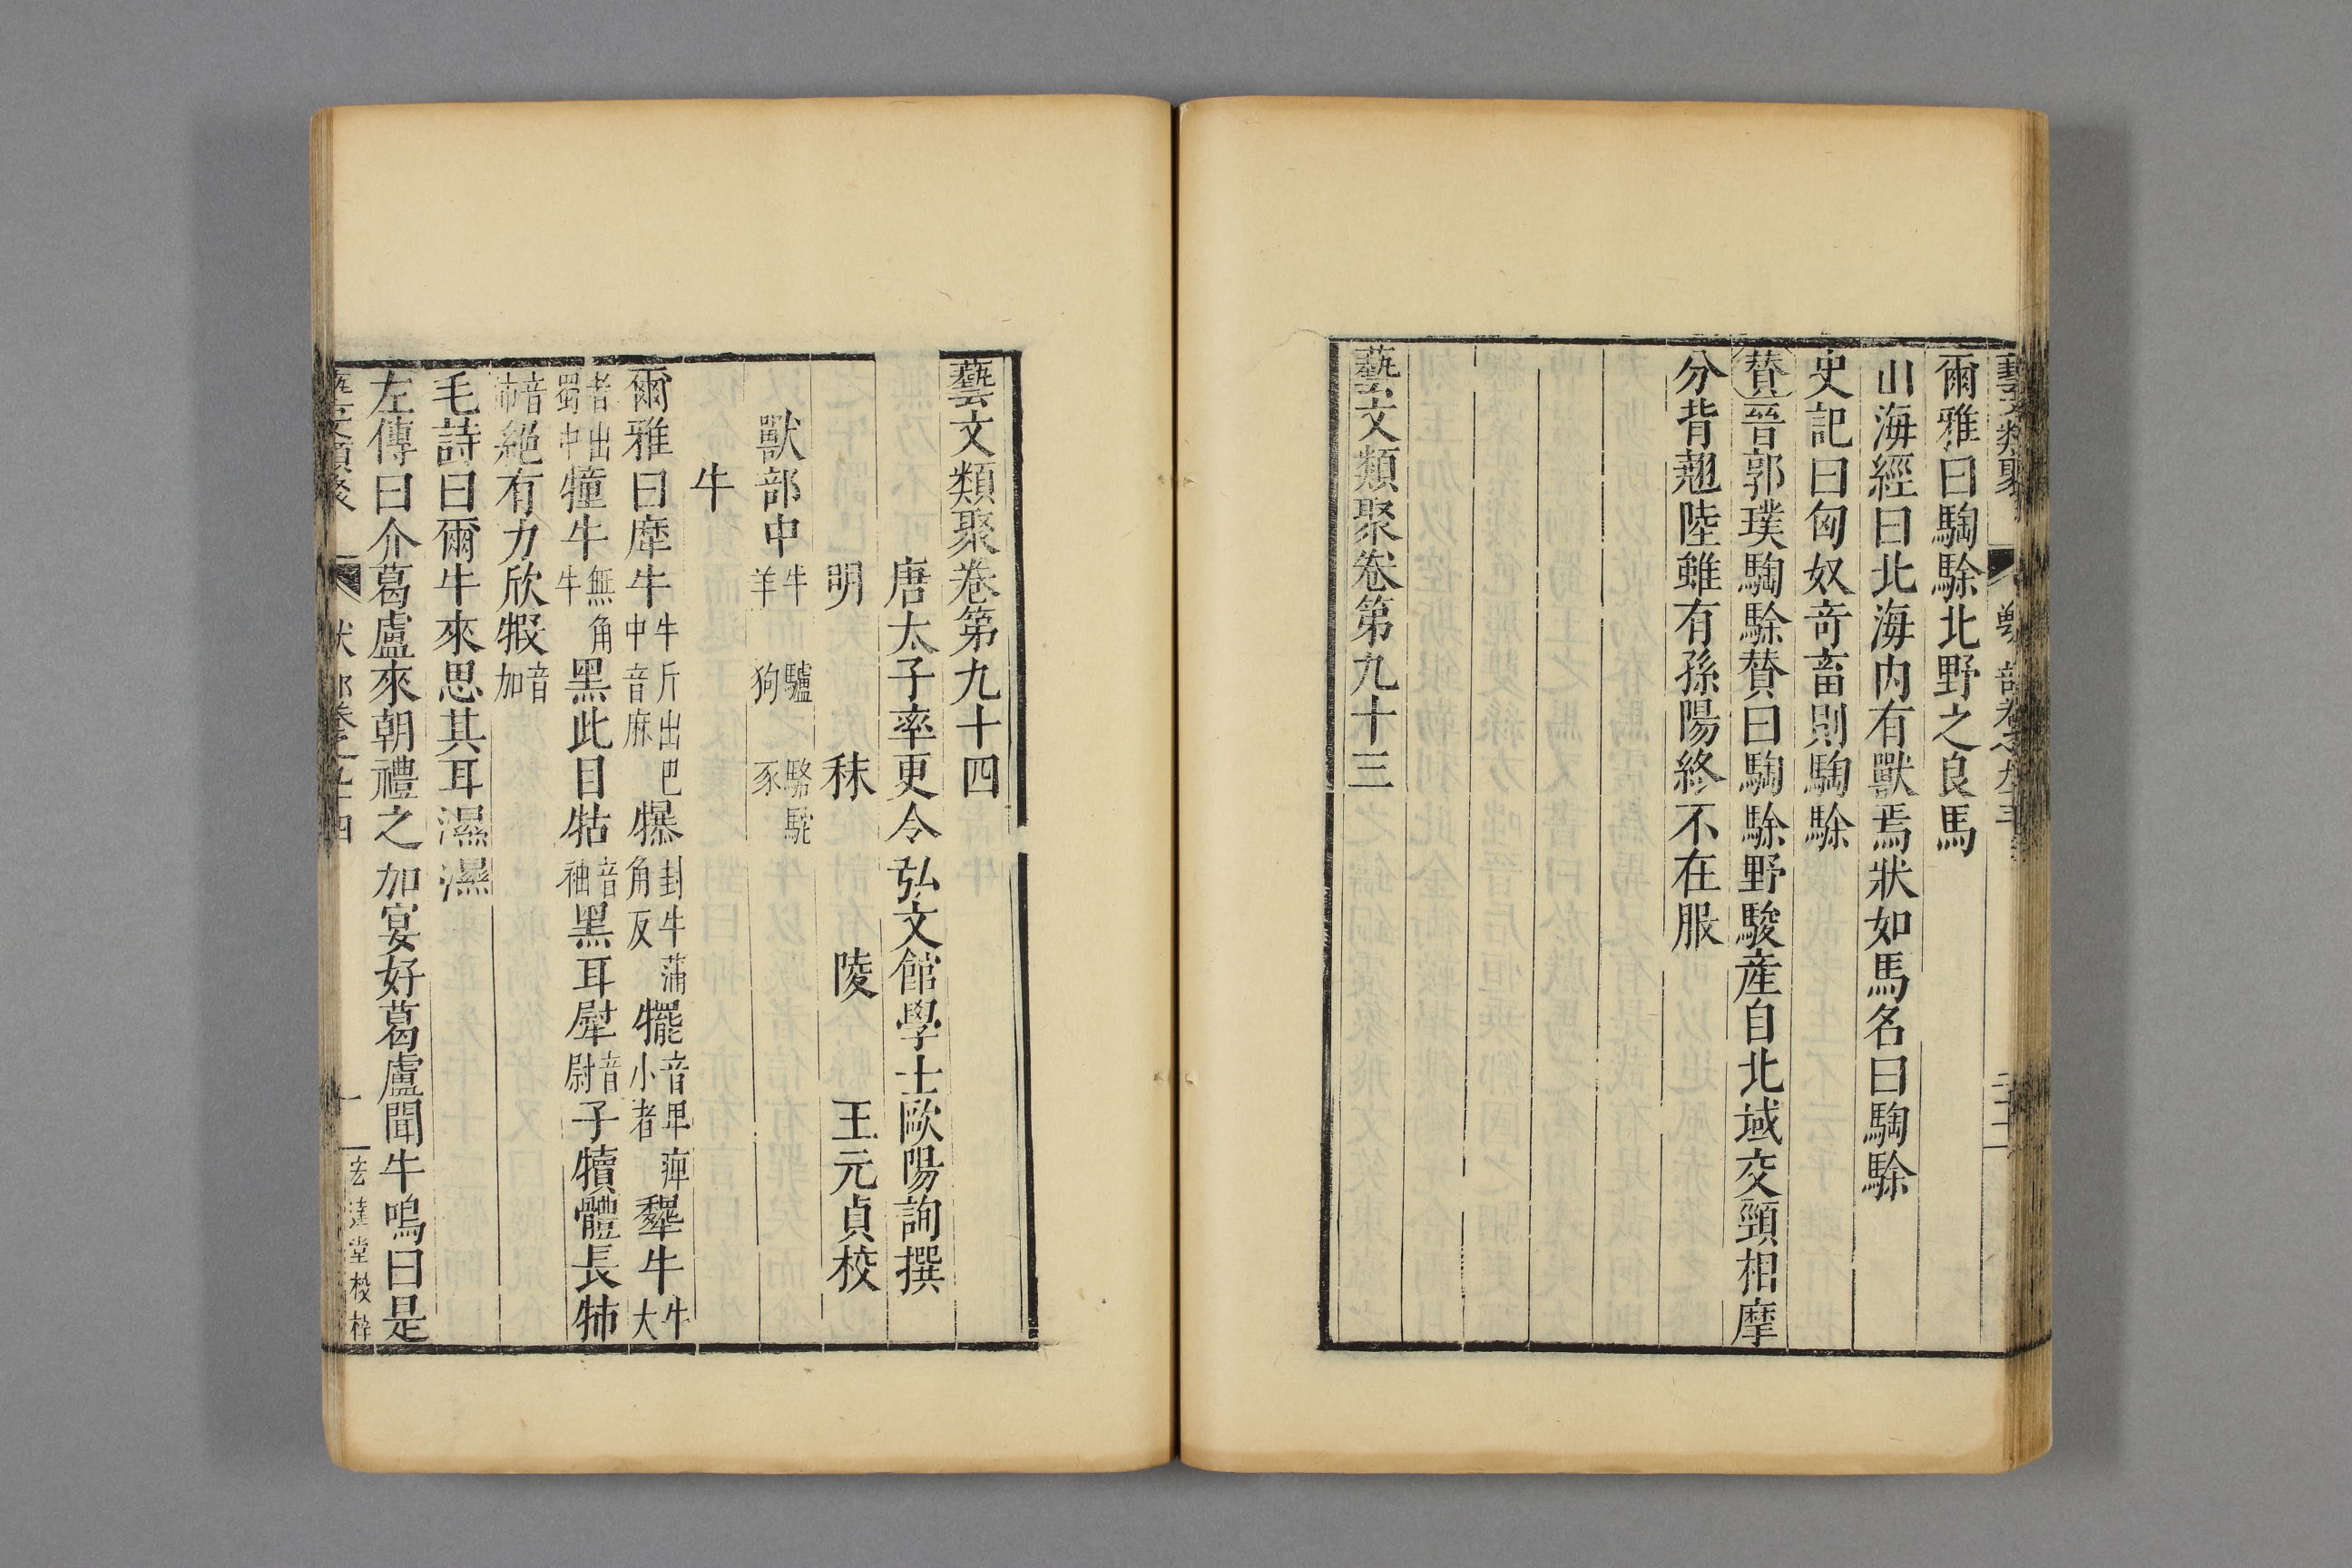 爾雅曰騊駼北野之良馬
山海經曰北海內有獸焉狀如馬名曰騊駼
史記曰匈奴奇畜則騊駼
贊晉郭璞騊駼贊曰騊駼野駿産自北域交頸相摩
分背翹陸雖有孫陽終不在服
藝文類聚卷第九十三
藝文類聚卷第九十四
唐太子率更令弘文館學士歐陽詢撰
明 秣 陵 王元貞校
獸部中 牛 驢 駱駝 羊 狗 豕
牛
爾雅曰犘牛牛斤出巴中音麻犦封牛蒲角反犤音卑痺小者犩牛牛大
者出蜀中㹐牛無角牛黑此目牰音袖黑耳犚音尉子犢體長㸬
音沛絕有力欣犌音加
毛詩曰爾牛來思其耳濕濕
左傳曰介葛盧來朝禮之加宴好葛盧聞牛鳴曰是
玄達堂校梓